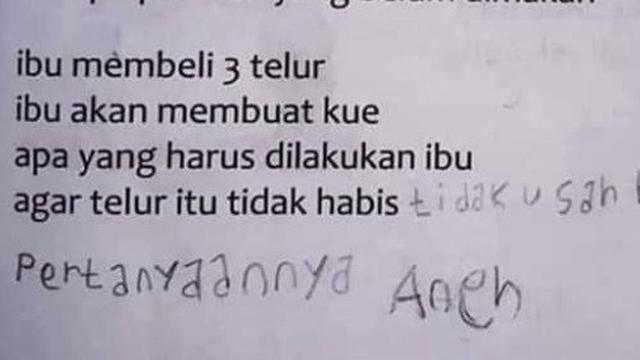 ibu membeli 3 telur
ibu akan membuat kue
apa yang harus dilakukan ibu
agar telur itu tidak habis tidak usah
Pertanyaannya Aneh